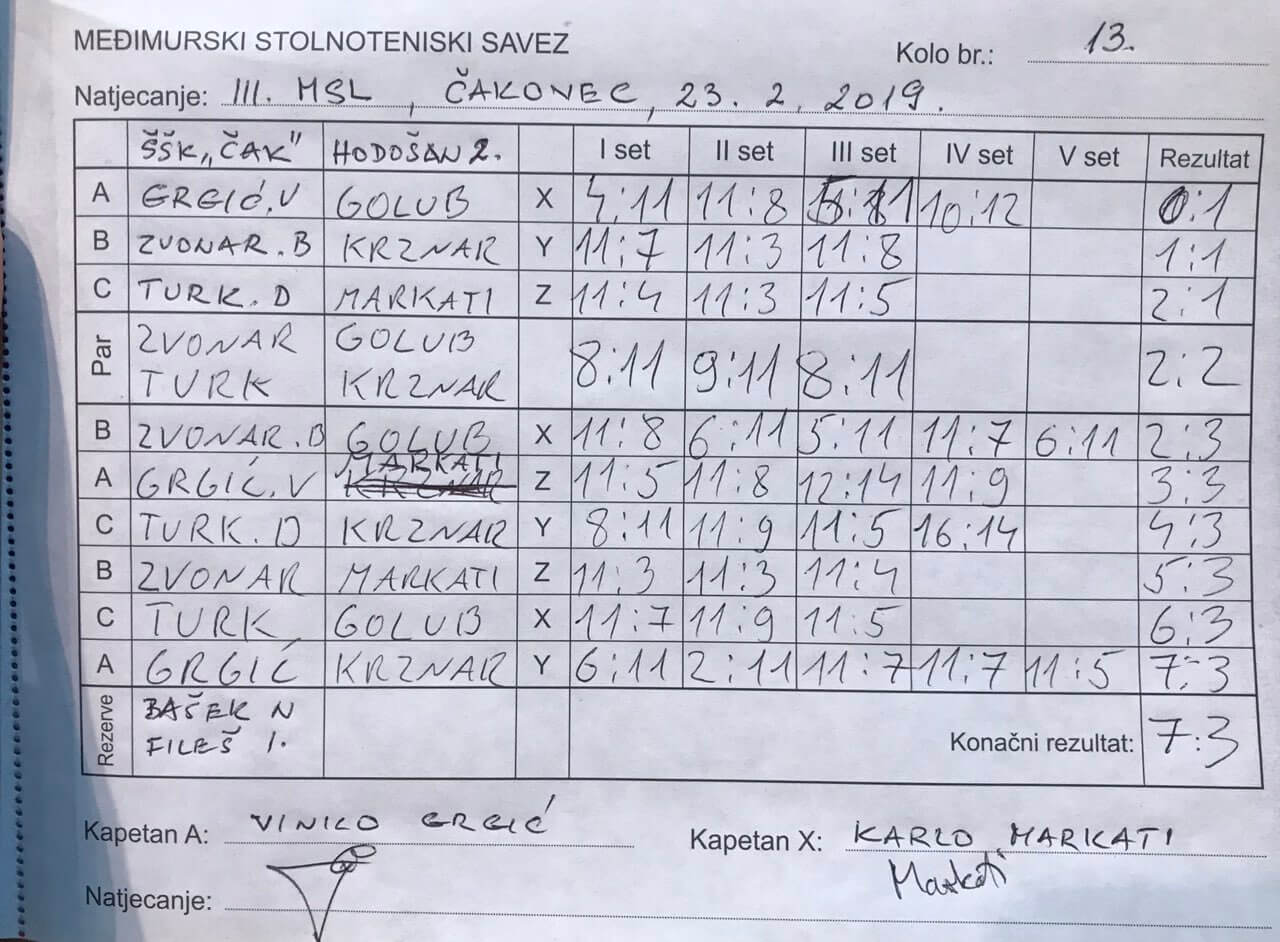 MEĐIMURSKI STOLNOTENISKI SAVEZ
Kolo br.: 13.
Natjecanje: III. MSL, ČAKOVEC, 23. 2. 2019.
ŠŠK „ČAK" HODOŠAN 2. I set II set III set IV set V set Rezultat
A GRGIĆ.V GOLUB X 4:11 11:8 10:12 0:1
B ZVONAR.B KRZNAR Y 11:7 11:3 11:8 1:1
C TURK.D MARKATI Z 11:4 11:3 11:5 2:1
Par ZVONAR GOLUB 8:11 9:11 8:11 2:2
TURK KRZNAR
B ZVONAR.B GOLUB X 11:8 6:11 5:11 11:7 6:11 2:3
A GRGIĆ.V MARKATI KRZNAR Z 11:5 11:8 12:14 11:9 3:3
C TURK.D KRZNAR Y 8:11 11:9 11:5 16:14 4:3
B ZVONAR MARKATI Z 11:3 11:3 11:4 5:3
C TURK GOLUB X 11:7 11:9 11:5 6:3
A GRGIĆ KRZNAR Y 6:11 2:11 11:7 11:7 11:5 7:3
Rezerve BAŠEK N
FILEŠ I. Konačni rezultat: 7:3
Kapetan A: VINKO GRGIĆ Kapetan X: KARLO MARKATI
Markati
Natjecanje: